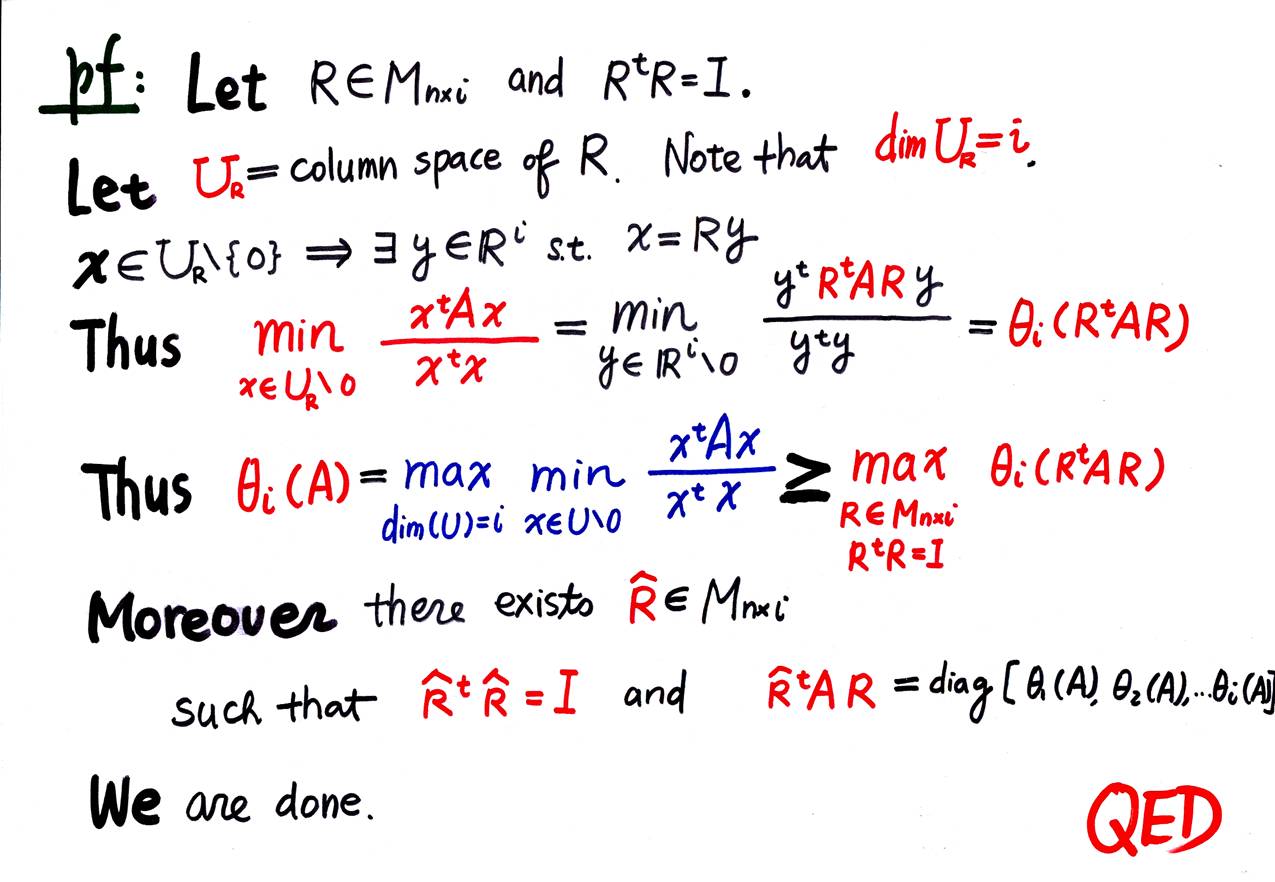 pf: Let R ∈ Mₙₓᵢ and RᵗR = I.
Let U_R = column space of R. Note that dim U_R = i.
x ∈ U_R \ {0} ⟹ ∃ y ∈ ℝⁱ s.t. x = Ry
Thus min_{x ∈ U_R \ 0} xᵗAx / xᵗx = min_{y ∈ ℝⁱ \ 0} yᵗRᵗARy / yᵗy = θᵢ(RᵗAR)
Thus θᵢ(A) = max_{dim(U)=i} min_{x∈U\0} xᵗAx / xᵗx ≥ max_{R∈Mₙₓᵢ RᵗR=I} θᵢ(RᵗAR)
Moreover there exists R̂ ∈ Mₙₓᵢ
such that R̂ᵗR̂ = I and R̂ᵗAR = diag [θ₁(A), θ₂(A), ...θᵢ(A)]
We are done.
QED